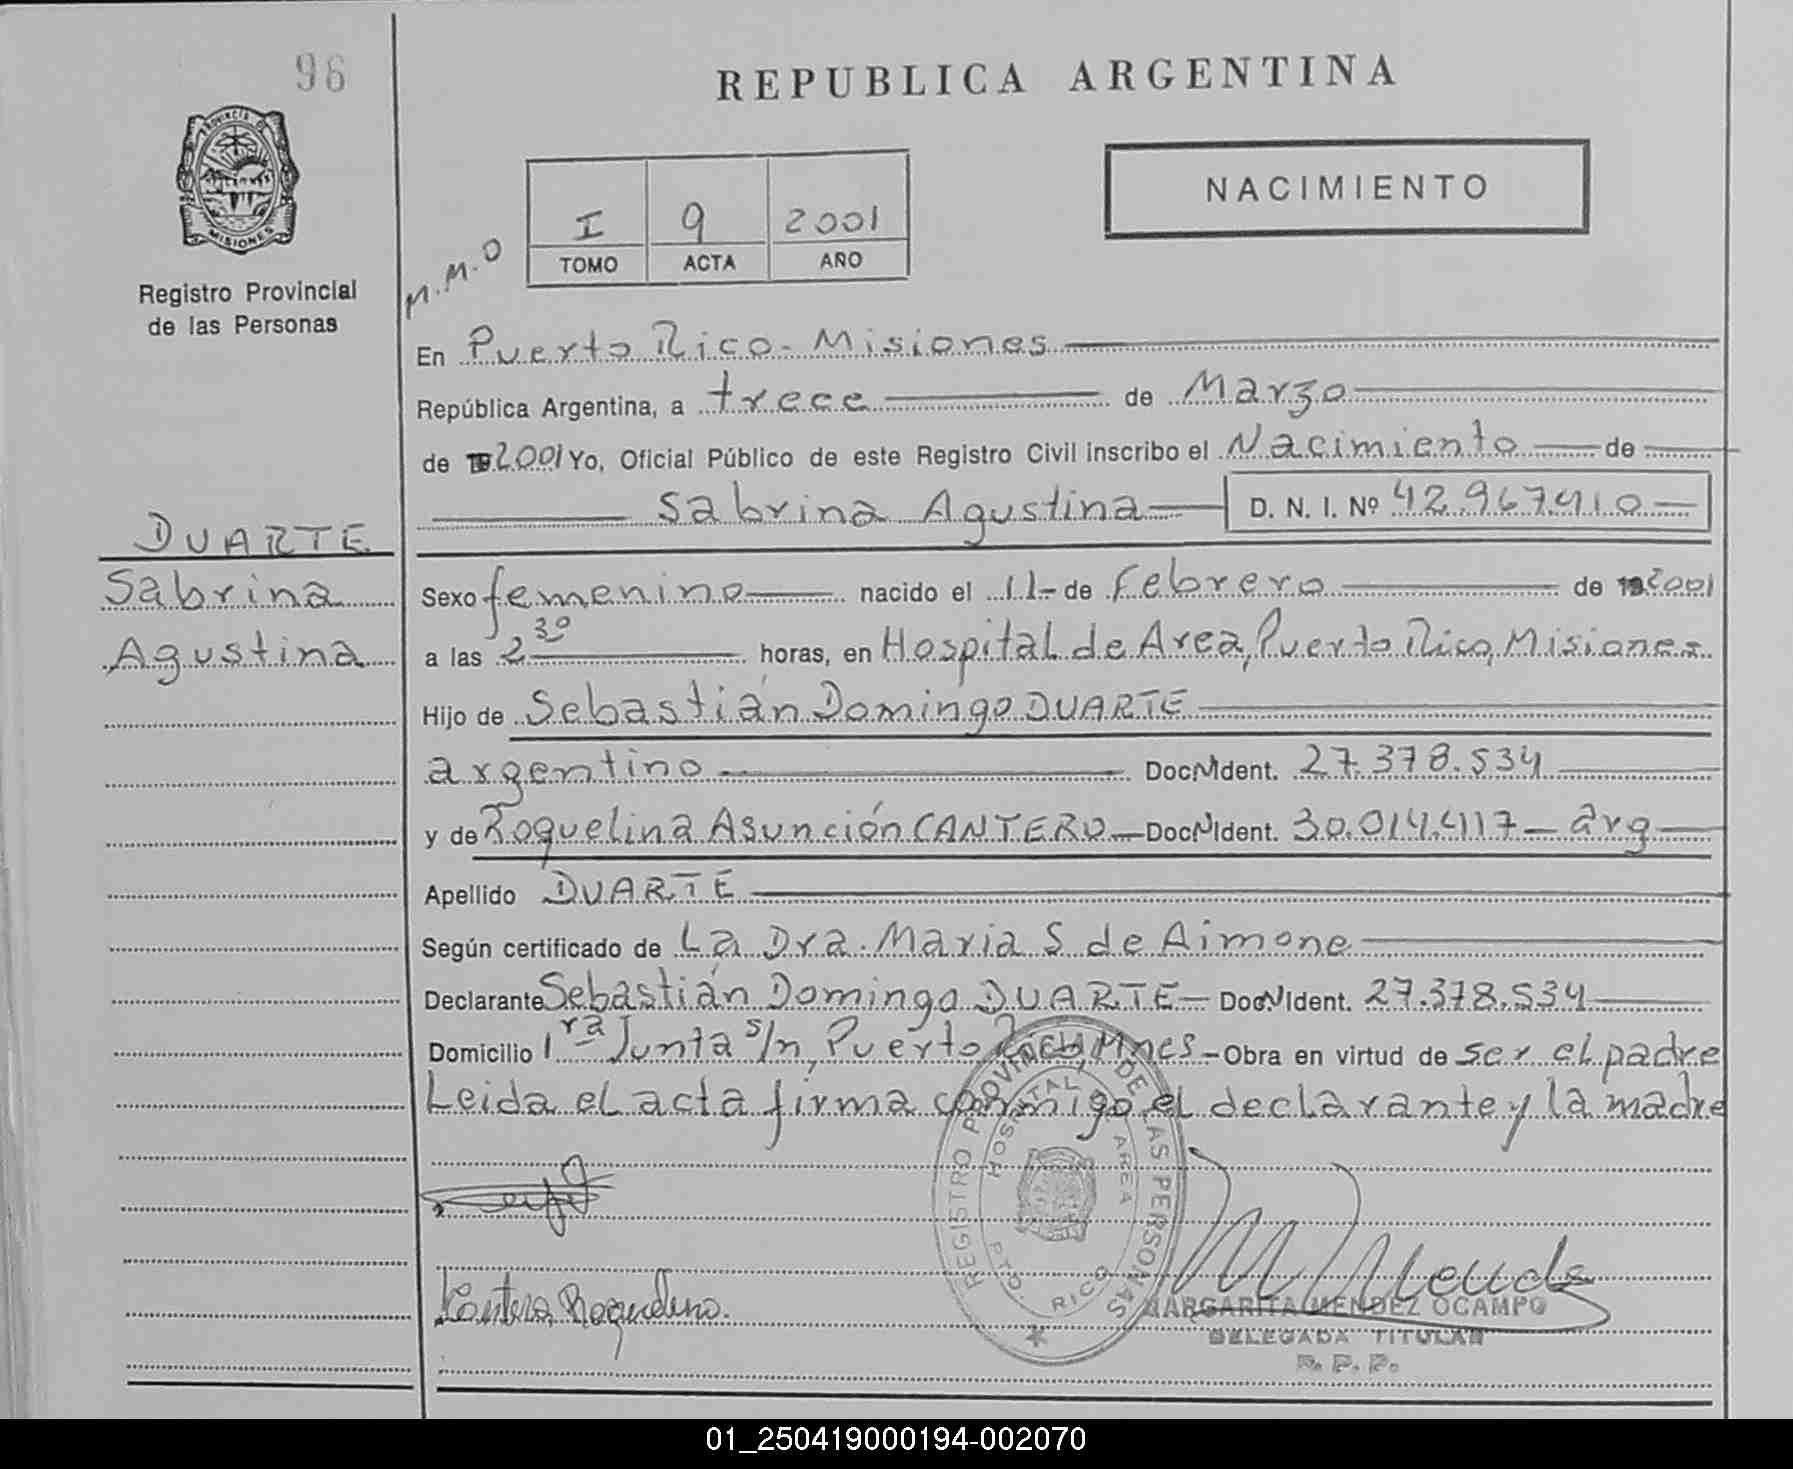 96
REPUBLICA ARGENTINA
PROVINCIA DE
MISIONES
Registro Provincial
de las Personas
NACIMIENTO
I 9 2001
TOMO ACTA AÑO
M.M.O
En Puerto Rico - Misiones
República Argentina, a trece de Marzo
de 19 2001 Yo, Oficial Público de este Registro Civil inscribo el Nacimiento de
Sabrina Agustina D. N. I. Nº 42.967.410
DUARTE
Sabrina
Agustina
Sexo femenino nacido el 11 - de Febrero de 19 2001
a las 2 30 horas, en Hospital de Area, Puerto Rico, Misiones.
Hijo de Sebastián Domingo DUARTE
argentino Doc. N Ident. 27.378.534
y de Roquelina Asunción CANTERO Doc. N Ident. 30.014.417 - arg
Apellido DUARTE
Según certificado de La Dra. Maria S de Aimone
Declarante Sebastián Domingo DUARTE Doc. N Ident. 27.378.534
Domicilio 1ra Junta s/n, Puerto Rico, Mnes - Obra en virtud de ser el padre
Leida el acta firma conmigo el declarante y la madre
REGISTRO PROVINCIAL DE LAS PERSONAS
HOSPITAL AREA
PTO. RICO
Cantero Roquelina.
M Mendez
MARGARITA MENDEZ OCAMPO
DELEGADA TITULAR
R. P. P.
01_250419000194-002070